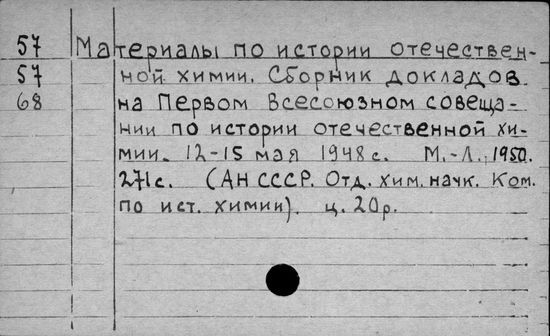 57 Материалы по истории отечествен-
57 ной химии. Сборник докладов
68 на Первом Всесоюзном совеща-
нии по истории отечественной хи-
мии. 12-15 мая 1948 г. М.-Л., 1950.
271с. (АН СССР. Отд. хим. наук. Ком.
по ист. химии). ц. 20р.